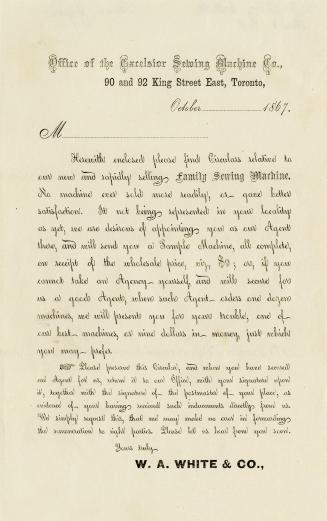 Office of the Excelsior Sewing Machine Co.,
90 and 92 King Street East, Toronto,
October 1867.
M
Herewith enclosed please find Circulars relative to
our new and rapidly selling Family Sewing Machine.
No machine ever sold more readily, or gave better
satisfaction. It not being represented in your locality
as yet, we are desirous of appointing you as our Agent
there, and will send you a Sample Machine, all complete,
on receipt of the wholesale price, viz, $9; or, if you
cannot take an Agency yourself, and will secure for
us a good Agent, when such Agent orders one dozen
machines, we will present you for your trouble, one of
our best machines, or nine dollars in money, just which
you may prefer.
☞ Please preserve this Circular, and when you have secured
an Agent for us, return it to our Office, with your signature upon
it, together with the signature of the postmaster of your place, as
evidence of your having received such inducements directly from us.
We simply request this, that we may make no error in forwarding
the remuneration to right parties. Please let us hear from you soon.
Yours truly,
W. A. WHITE & CO.,